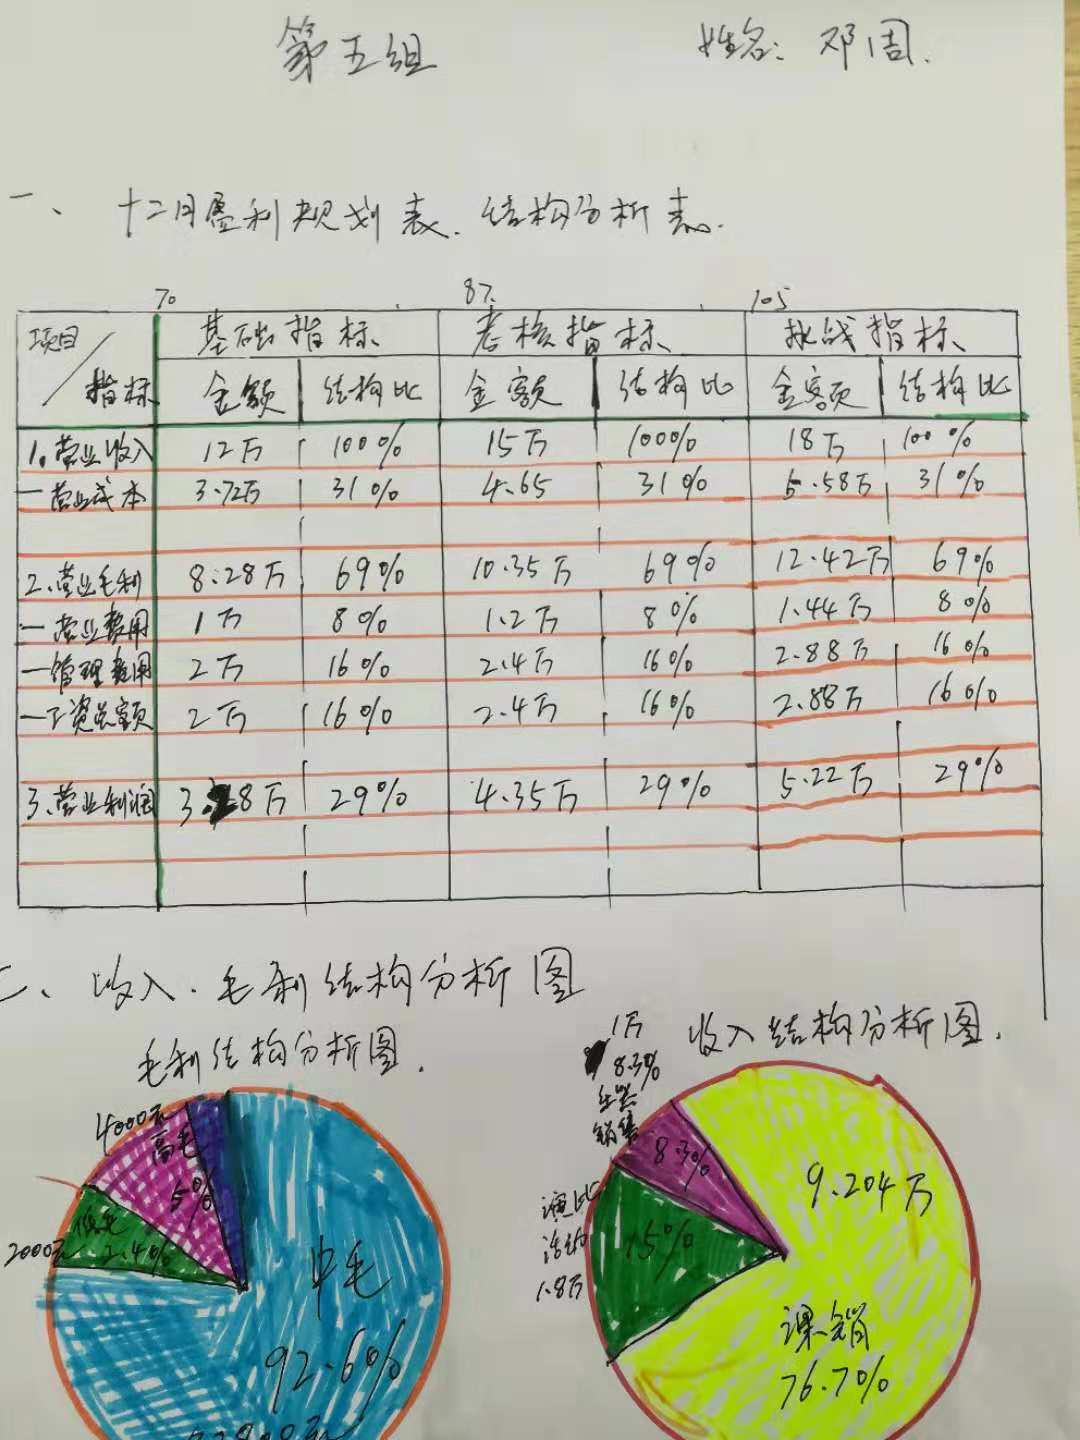 第五组 姓名: 邓周.
一、 十二月盈利规划表、结构分析表.
70 87. 105
项目 基础指标 考核指标 挑战指标
指标 金额 结构比 金额 结构比 金额 结构比
1.营业收入 12万 100% 15万 100% 18万 100%
一营业成本 3.72万 31% 4.65 31% 5.58万 31%
2.营业毛利 8.28万 69% 10.35万 69% 12.42万 69%
一营业费用 1万 8% 1.2万 8% 1.44万 8%
一管理费用 2万 16% 2.4万 16% 2.88万 16%
一工资总额 2万 16% 2.4万 16% 2.88万 16%
3.营业利润 3.28万 29% 4.35万 29% 5.22万 29%
二、收入.毛利结构分析图
毛利结构分析图.
4000元
高毛
5%
2000元
低毛
2.4%
中毛
92.6%
收入结构分析图.
1万
8.3%
销售
8.3%
活动
1.8万
15%
9.204万
课销
76.7%